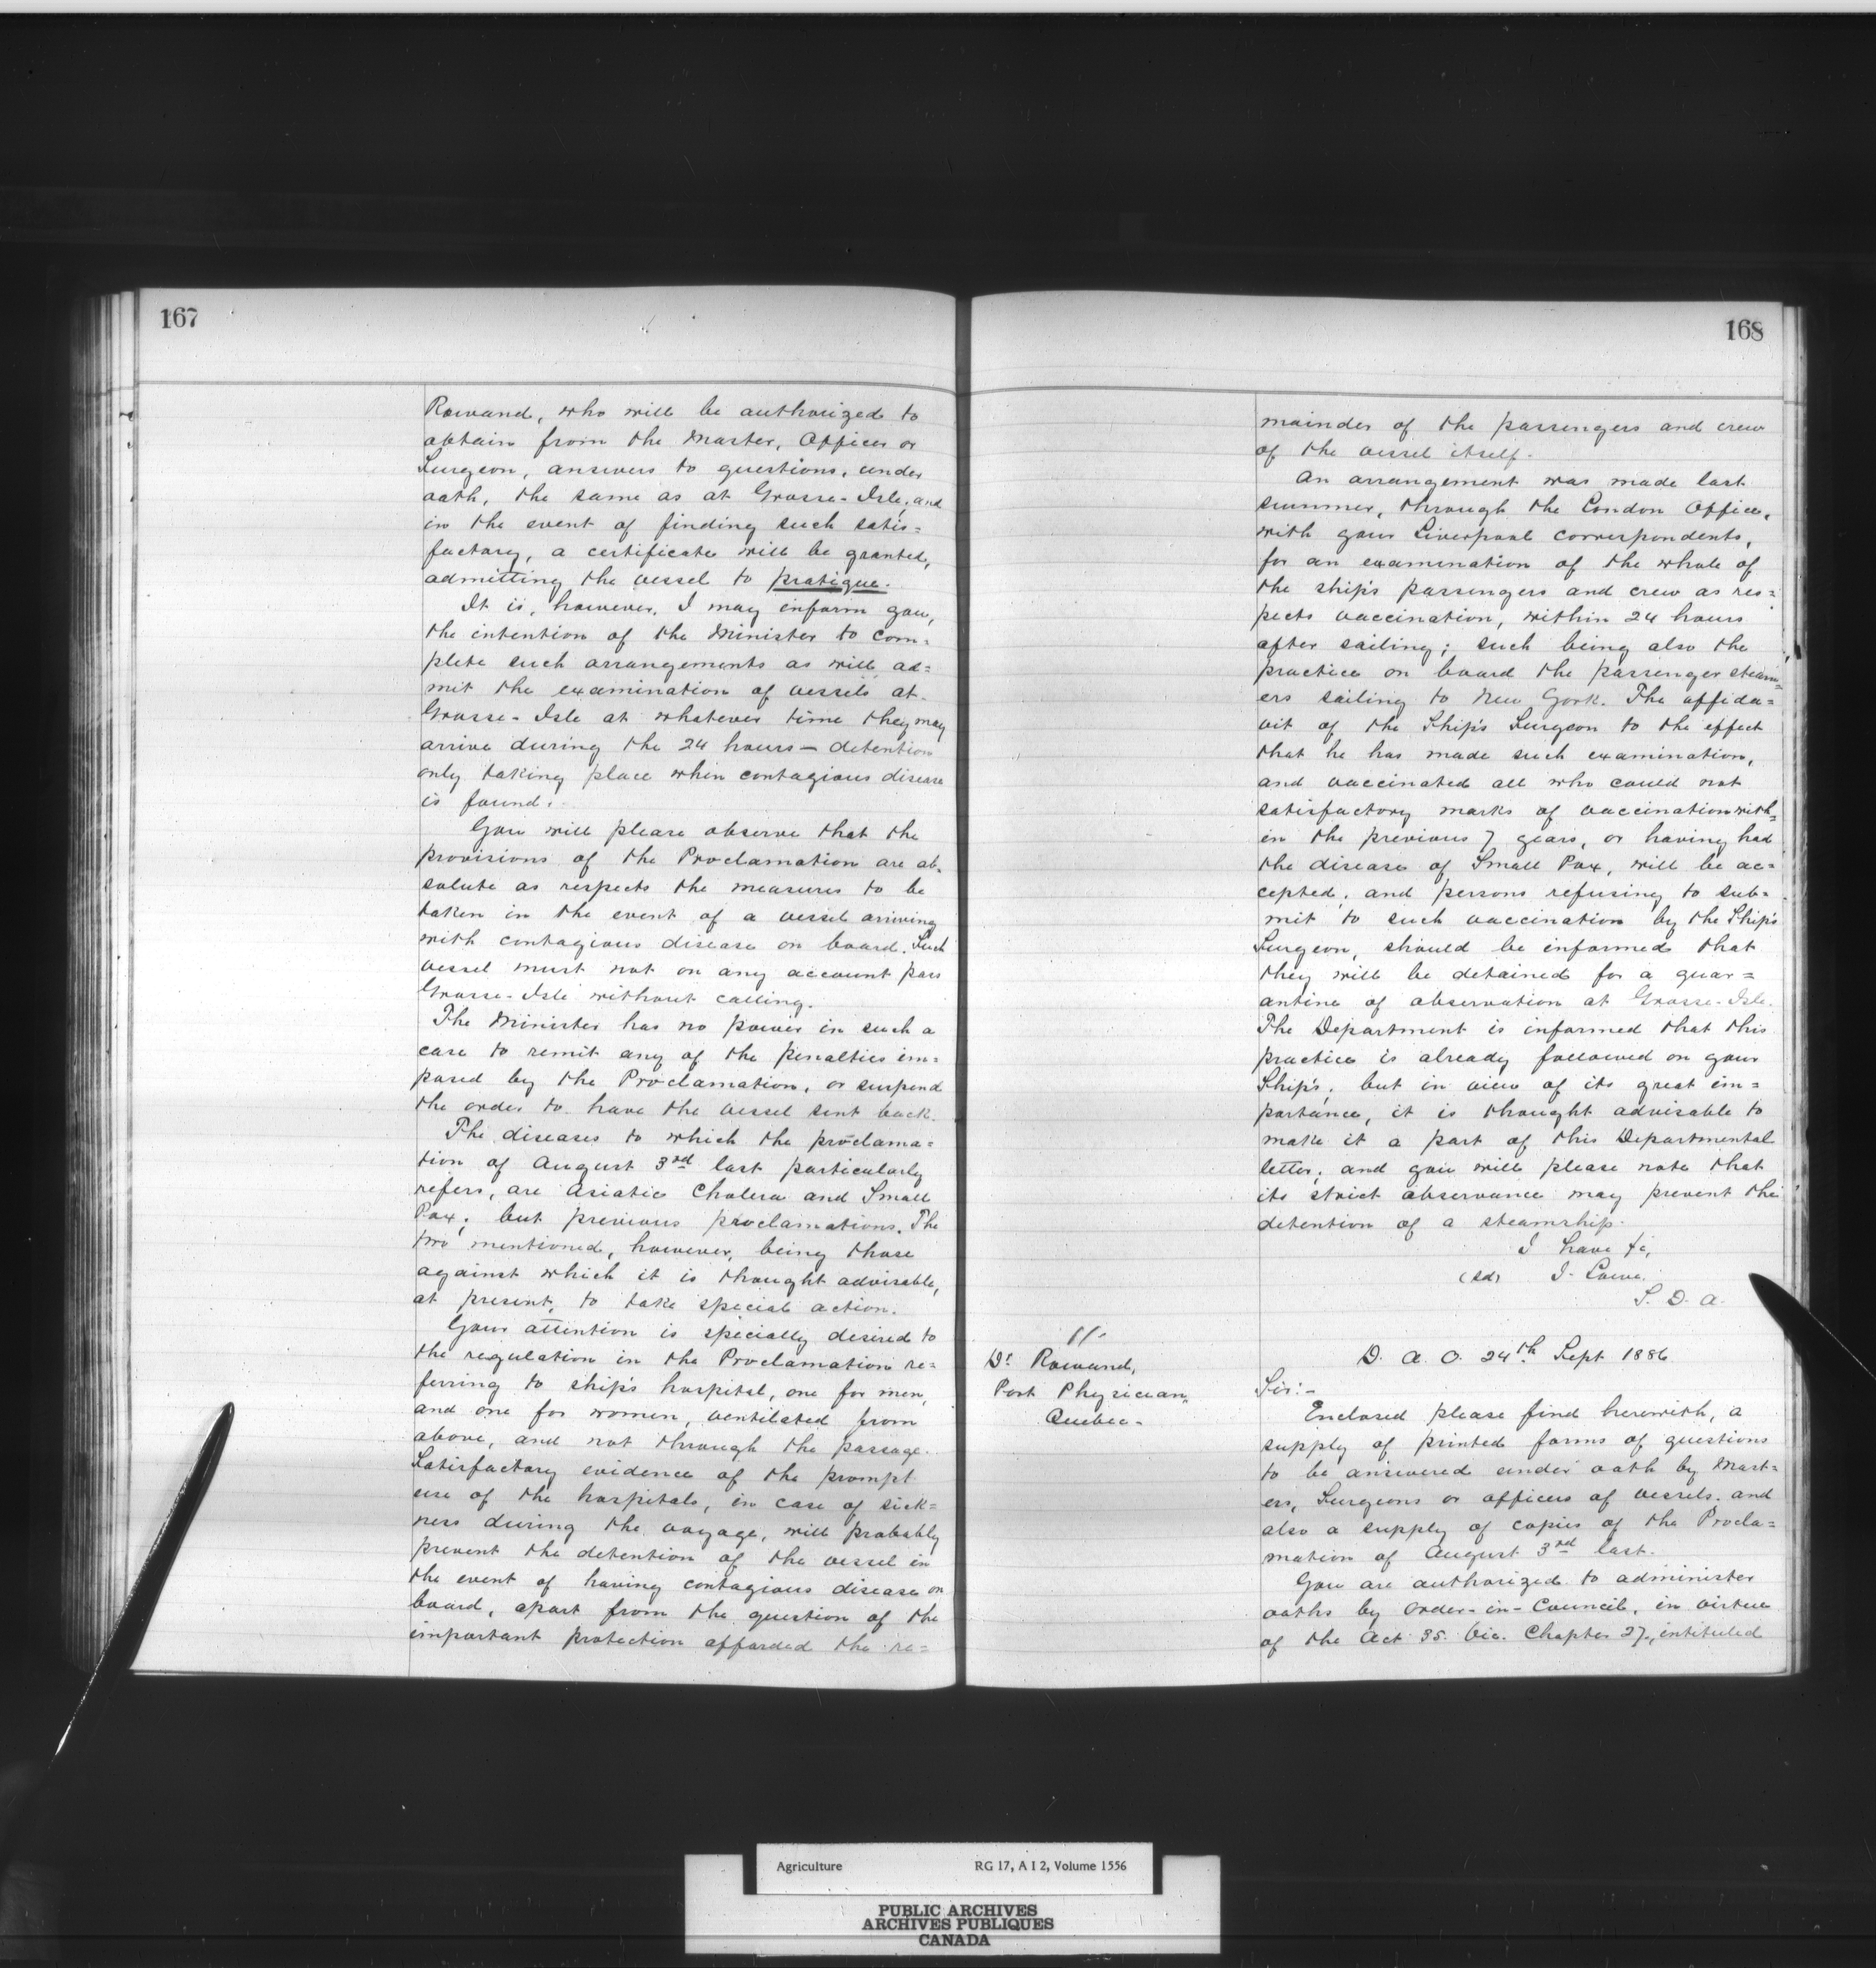 167
Rowand, who will be authorized to
obtain from the Master, Officer or
Surgeon, answers to questions, under
oath, the same as at Grosse-Isle, and
in the event of finding such satis=
factory, a certificate will be granted,
admitting the vessel to pratique.
It is, however, I may inform you,
the intention of the Minister to com=
plete such arrangements as will ad=
mit the examination of vessels at
Grosse-Isle at whatever time they may
arrive during the 24 hours — detention
only taking place when contagious disease
is found.
You will please observe that the
provisions of the Proclamation are ab=
solute as respects the measures to be
taken in the event of a vessel arriving
with contagious disease on board. Such
vessel must not on any account pass
Grosse-Isle without calling.
The Minister has no power in such a
case to remit any of the penalties im=
posed by the Proclamation, or suspend
the order to have the vessel sent back.
The diseases to which the proclama=
tion of August 3rd last particularly
refers, are Asiatic Cholera and Small
Pox; but previous proclamations. The
two mentioned, however, being those
against which it is thought advisable,
at present, to take special action.
Your attention is specially desired to
the regulation in the Proclamation re=
ferring to ship's hospital, one for men,
and one for women, ventilated from
above, and not through the passage.
Satisfactory evidence of the prompt
use of the hospitals, in case of sick=
ness during the voyage, will probably
prevent the detention of the vessel in
the event of having contagious disease on
board, apart from the question of the
important protection afforded the re=
168
mainder of the passengers and crew
of the vessel itself.
An arrangement was made last
summer, through the London Office,
with your Liverpool correspondents,
for an examination of the whole of
the ship's passengers and crew as res=
pects vaccination, within 24 hours
after sailing; such being also the
practice on board the passenger steam=
ers sailing to New York. The affida=
vit of the Ship's Surgeon to the effect
that he has made such examination,
and vaccinated all who could not
satisfactory marks of vaccination with=
in the previous 7 years, or having had
the disease of Small Pox, will be ac=
cepted; and persons refusing to sub=
mit to such vaccination by the Ship's
Surgeon, should be informed that
they will be detained for a quar=
antine of observation at Grosse-Isle.
The Department is informed that this
practice is already followed on your
Ship's; but in view of its great im=
portance, it is thought advisable to
make it a part of this Departmental
letter; and you will please note that
its strict observance may prevent the
detention of a steamship.
I have &c,
(sd) J. Lowe.
S. D. A.
11.
Dr. Rowand,
Port Physician,
Quebec.
D. A. O. 24th Sept 1886
Sir:-
Enclosed please find herewith, a
supply of printed forms of questions
to be answered under oath by Mast=
ers, Surgeons or officers of vessels, and
also a supply of copies of the Procla=
mation of August 3rd last.
You are authorized to administer
oaths by Order-in-Council, in virtue
of the Act 35. Vic. Chapter 27, intituled
Agriculture RG 17, A I 2, Volume 1556
PUBLIC ARCHIVES
ARCHIVES PUBLIQUES
CANADA